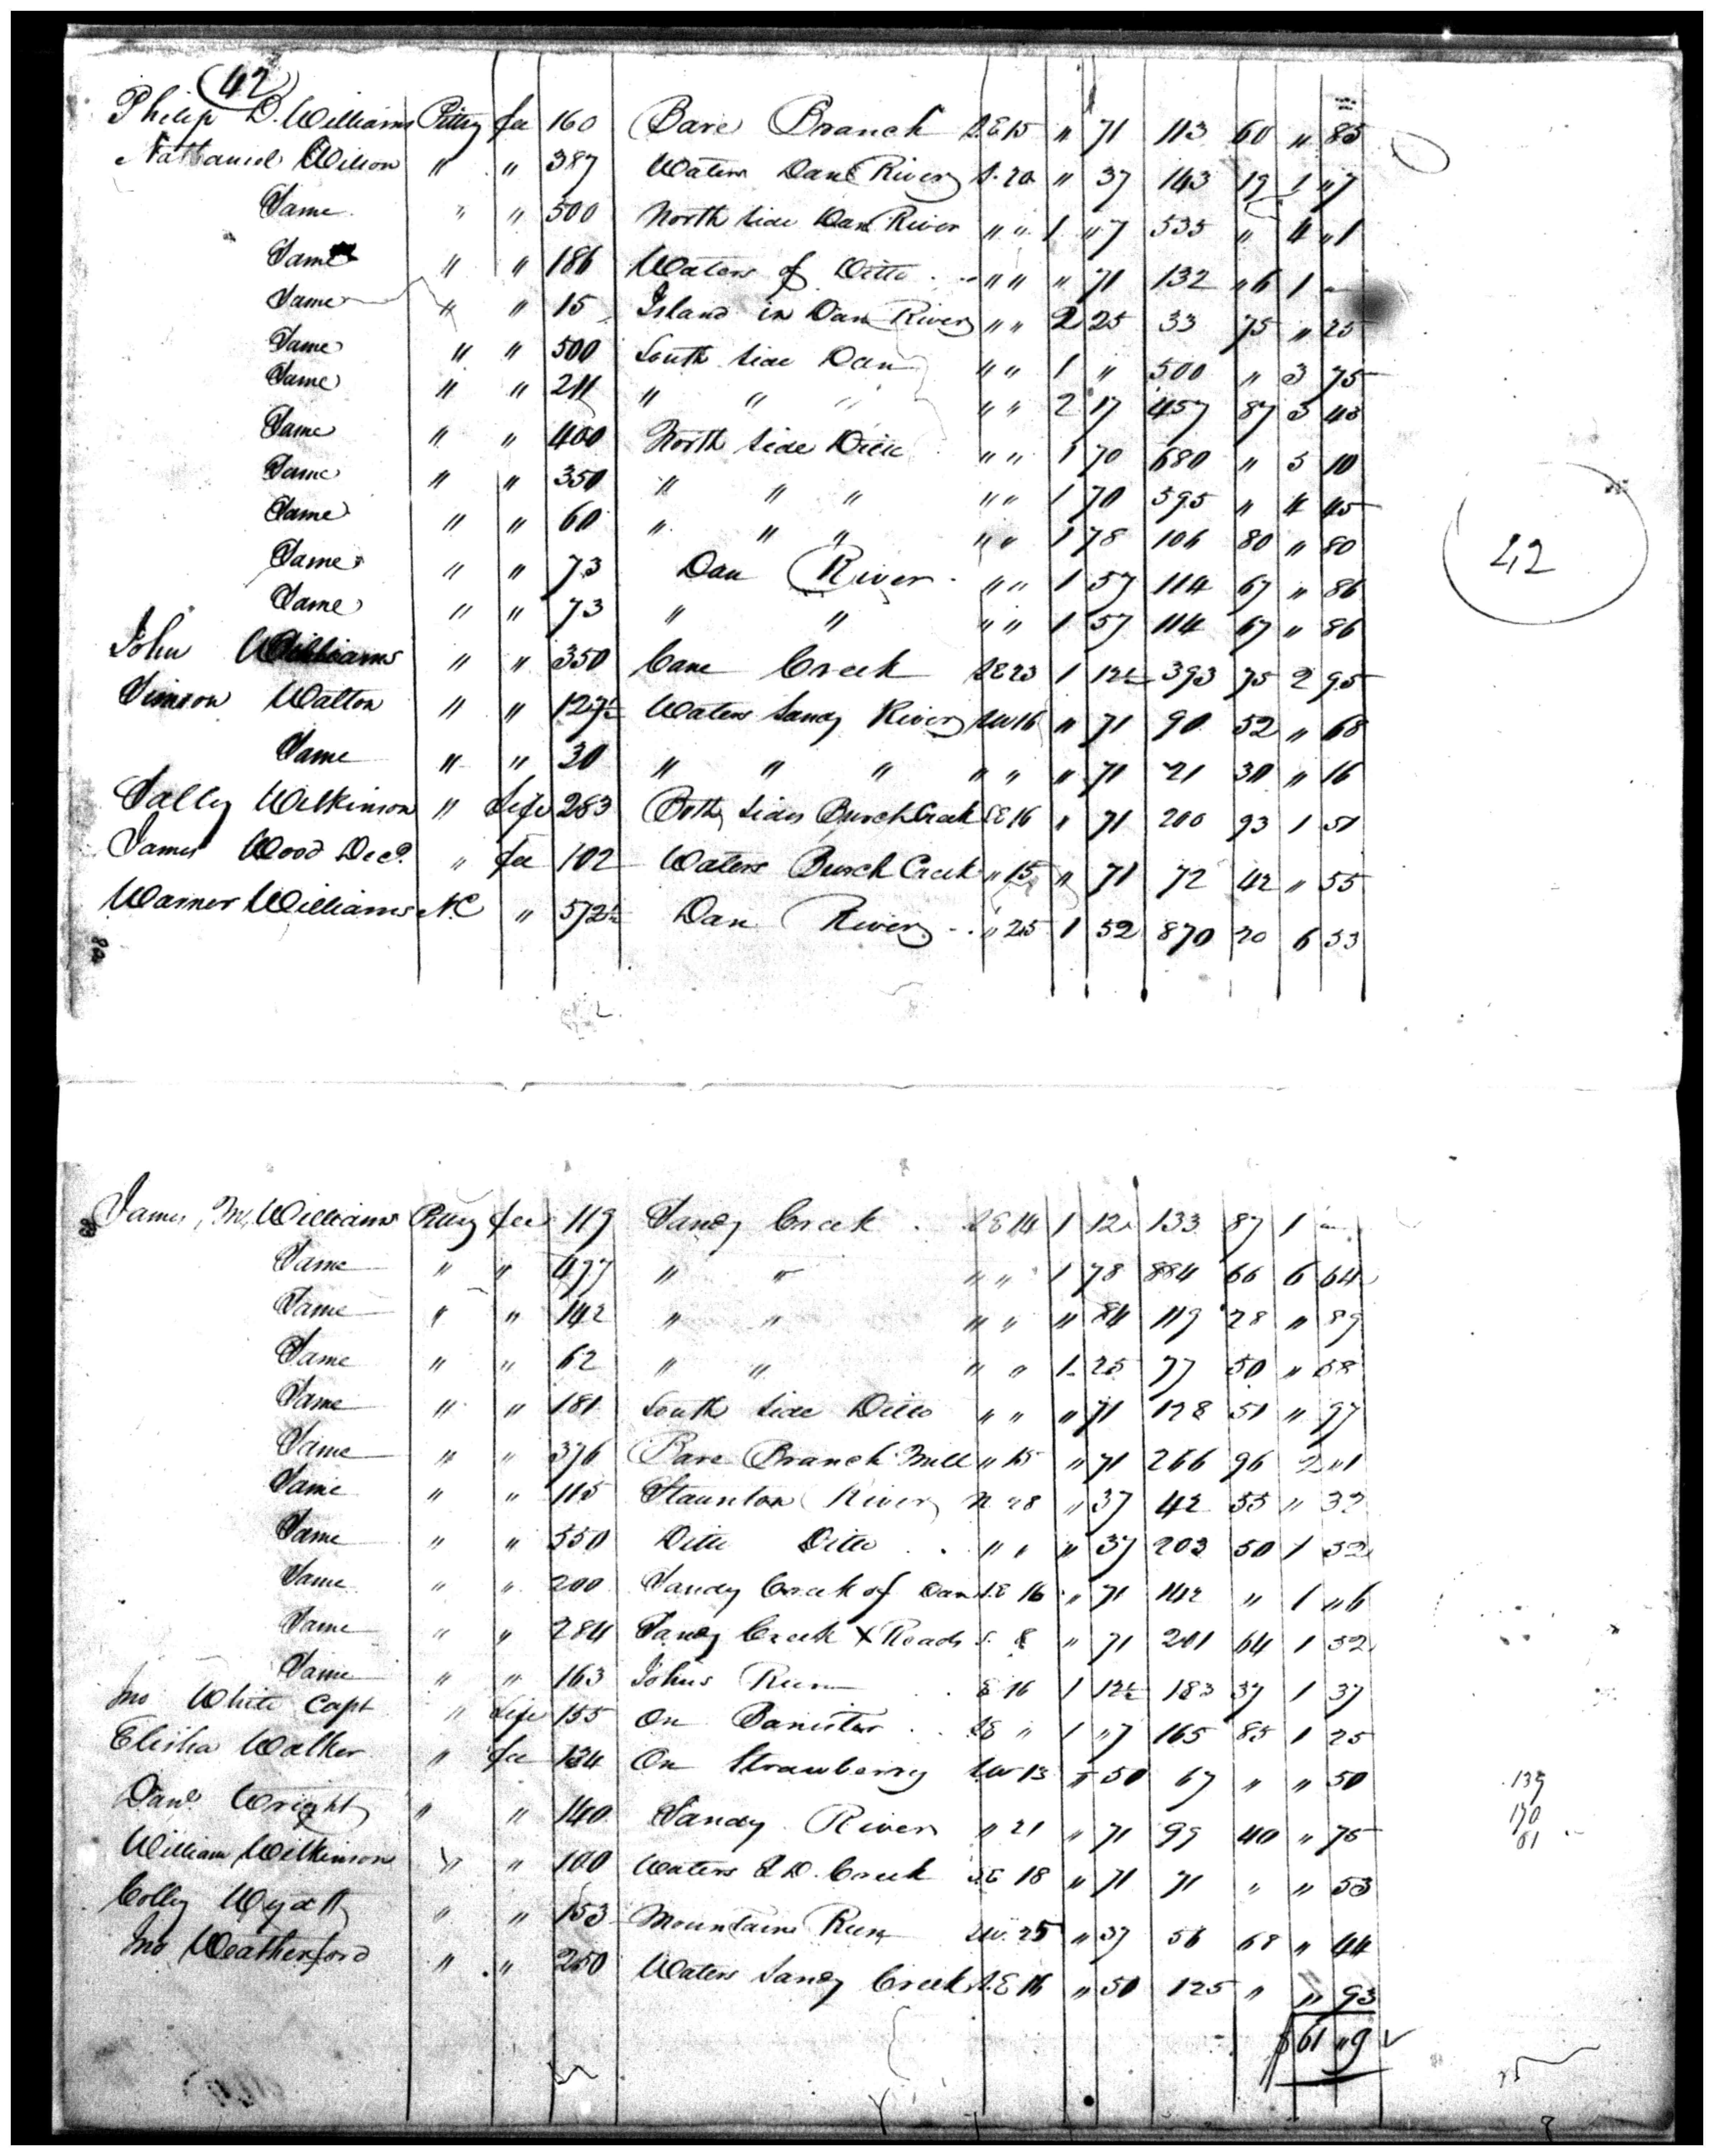 42
Philip D. Williams Pittsy fee 160 Bare Branch S.E 15 " 71 113 60 " 85
Nathaniel Wilson " " 387 Waters Dan River S. 20 " 37 143 19 1 " 7
Same " " 500 North side Dan River " " 1 " 7 535 " 4 " 1
Same " " 186 Waters of Ditto " " " 71 132 " 6 1 "
Same " " 15 Island in Dan River " " 2 25 33 75 " 25
Same " " 500 South side Dan " " 1 " 500 " 3 75
Same " " 211 " " " " " 2 17 457 87 3 43
Same " " 400 North side Ditto " " 1 70 680 " 5 10
Same " " 350 " " " " " 1 70 595 " 4 45
Same " " 60 " " " " " 1 78 106 80 " 80
Same " " 73 Dan River " " 1 57 114 67 " 86
42
Same " " 73 " " " " 1 57 114 67 " 86
John Williams " " 350 Cane Creek S.E 23 1 12½ 393 75 2 95
Simeon Walton " " 127½ Waters Sandy River S.W 16 " 71 90 52 " 68
Same " " 30 " " " " " " 71 21 30 " 16
Sally Wilkinson " Life 283 Both sides Burch Creek S.E 16 " 71 200 93 1 51
James Wood Decd. " fee 102 Waters Burch Creek " 15 " 71 72 42 " 55
Warner Williams N.C " 572½ Dan River " 25 1 52 870 20 6 53
James M. Williams Pittsy fee 119 Sandy Creek S.E 14 1 12½ 133 87 1 "
Same " " 497 " " " " 1 78 884 66 6 64
Same " " 142 " " " " " 84 119 28 " 89
Same " " 62 " " " " 1 25 77 50 " 58
Same " " 181 South side Ditto " " " 71 128 51 " 97
Same " " 376 Bare Branch Mill " 15 " 71 266 96 2 " 1
Same " " 115 Staunton River N 28 " 37 42 55 " 32
Same " " 550 Ditto Ditto " " " 37 203 50 1 52
Same " " 200 Sandy Creek of Dan S.E 16 " 71 142 " 1 " 6
Same " " 284 Sandy Creek X Roads S. 8 " 71 201 64 1 52
Same " " 163 Johns Run E 16 1 12½ 183 37 1 37
Jno White Capt " Life 155 On Banister S.E " 1 " 7 165 85 1 25
Elisha Walker " fee 134 On Strawberry S.W 13 " 50 67 " " 50
139
Danl. Wright " " 140 Sandy River " 21 " 71 99 40 " 75
190
61
William Wilkinson " " 100 Waters S.E 18 " 71 71 " " 53
Colley Wyatt " " 153 Mountain Run S.W. 25 " 37 56 68 " 44
Jno Weatherford " " 250 Waters Sandy Creek S.E 16 " 50 125 " " 93
$61 " 9